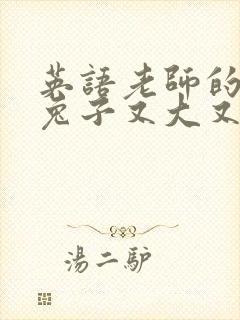 英語老師的
兔子又大又
湯二驴